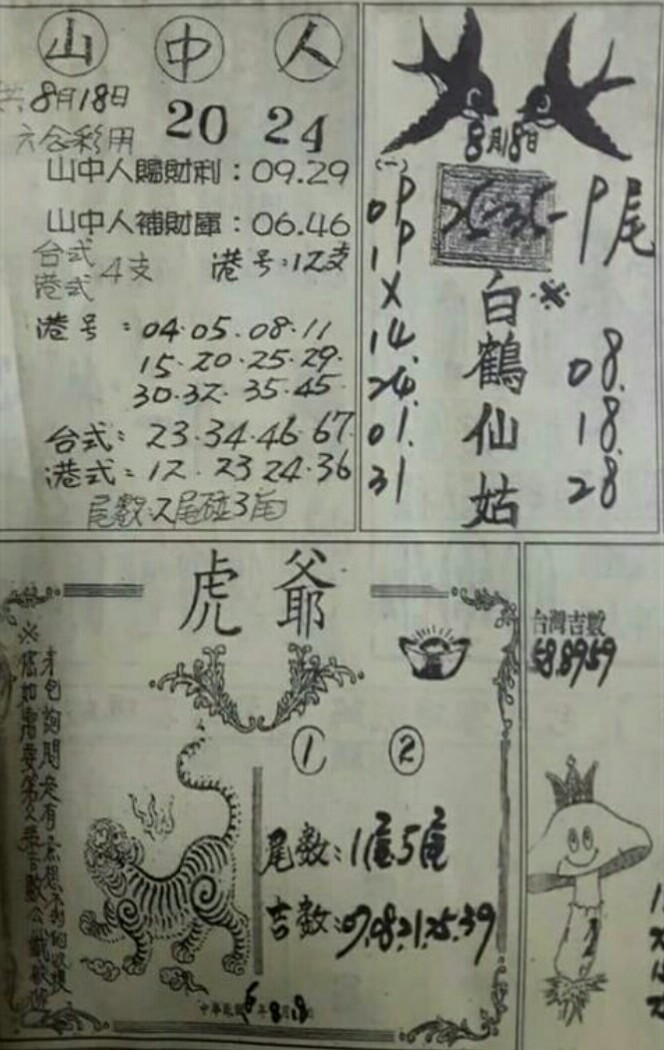 山中人
8月18日
20 24
六合彩用
山中人賜財利：09.29
山中人補財庫：06.46
台式
港式 4支 港号：12支
港号：04·05·08·11
15·20·25·29·
30·32·35·45
台式：23·34·46·67
港式：12·23 24·36
尾数：2尾碰3尾
8月18日
(一)
0P
1P
X
14.
24.
01.
31
25-35-P尾
白鶴仙姑
※
08.
18.
28
虎爺
① ②
尾数：1尾5尾
吉数：07.08.21.25.39
中華民國6年8月18日
台灣吉數
58.8959